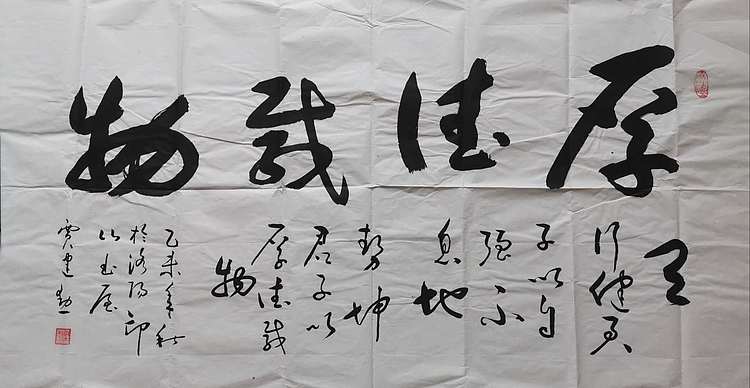 厚德载物
天
行健君
子以自
强不
息地
势坤
君子以
厚德载
物
乙未年秋
於洛阳印
心书屋
贾建勋